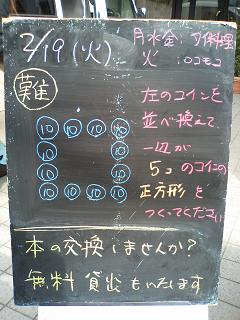 2/19(火)
月水金 刃料理
火 :ロコモコ
難
左のコインを
並べ換えて
一辺が
5コのコインの
正方形を
つくってください
10 10 10 10
10 10
10 10
10 10 10 10
本の交換しませんか?
無料貸出もいたします